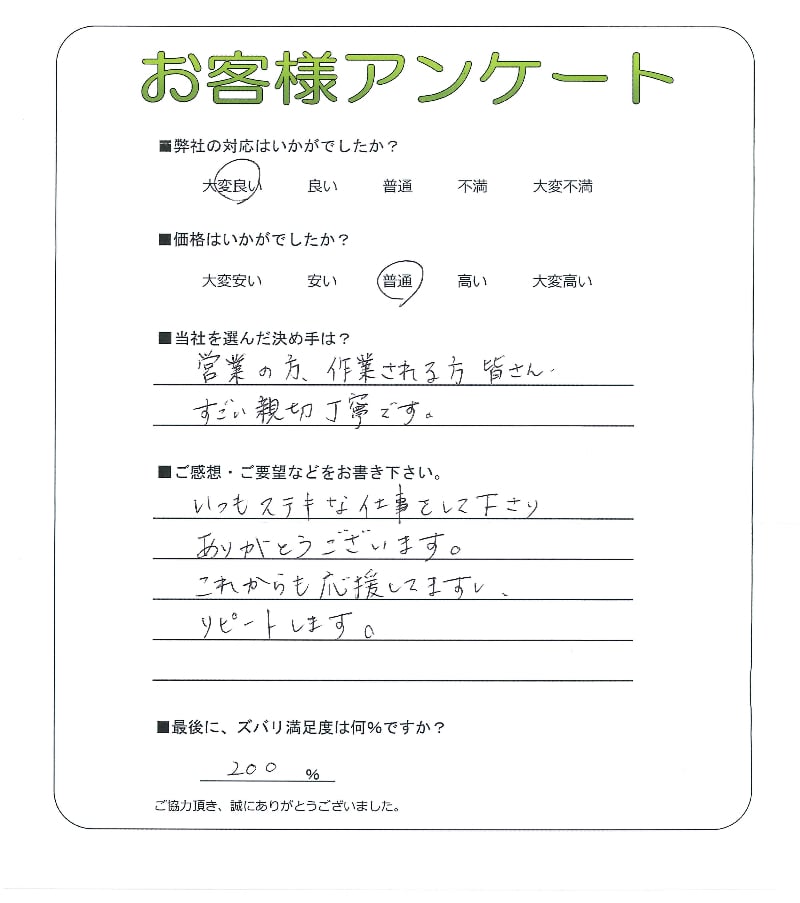 お客様アンケート
■弊社の対応はいかがでしたか？
大変良い 良い 普通 不満 大変不満
■価格はいかがでしたか？
大変安い 安い 普通 高い 大変高い
■当社を選んだ決め手は？
営業の方、作業される方 皆さん、
すごい親切丁寧です。
■ご感想・ご要望などをお書き下さい。
いつもステキな仕事をして下さり
ありがとうございます。
これからも応援してますし、
リピートします。
■最後に、ズバリ満足度は何%ですか？
200 %
ご協力頂き、誠にありがとうございました。